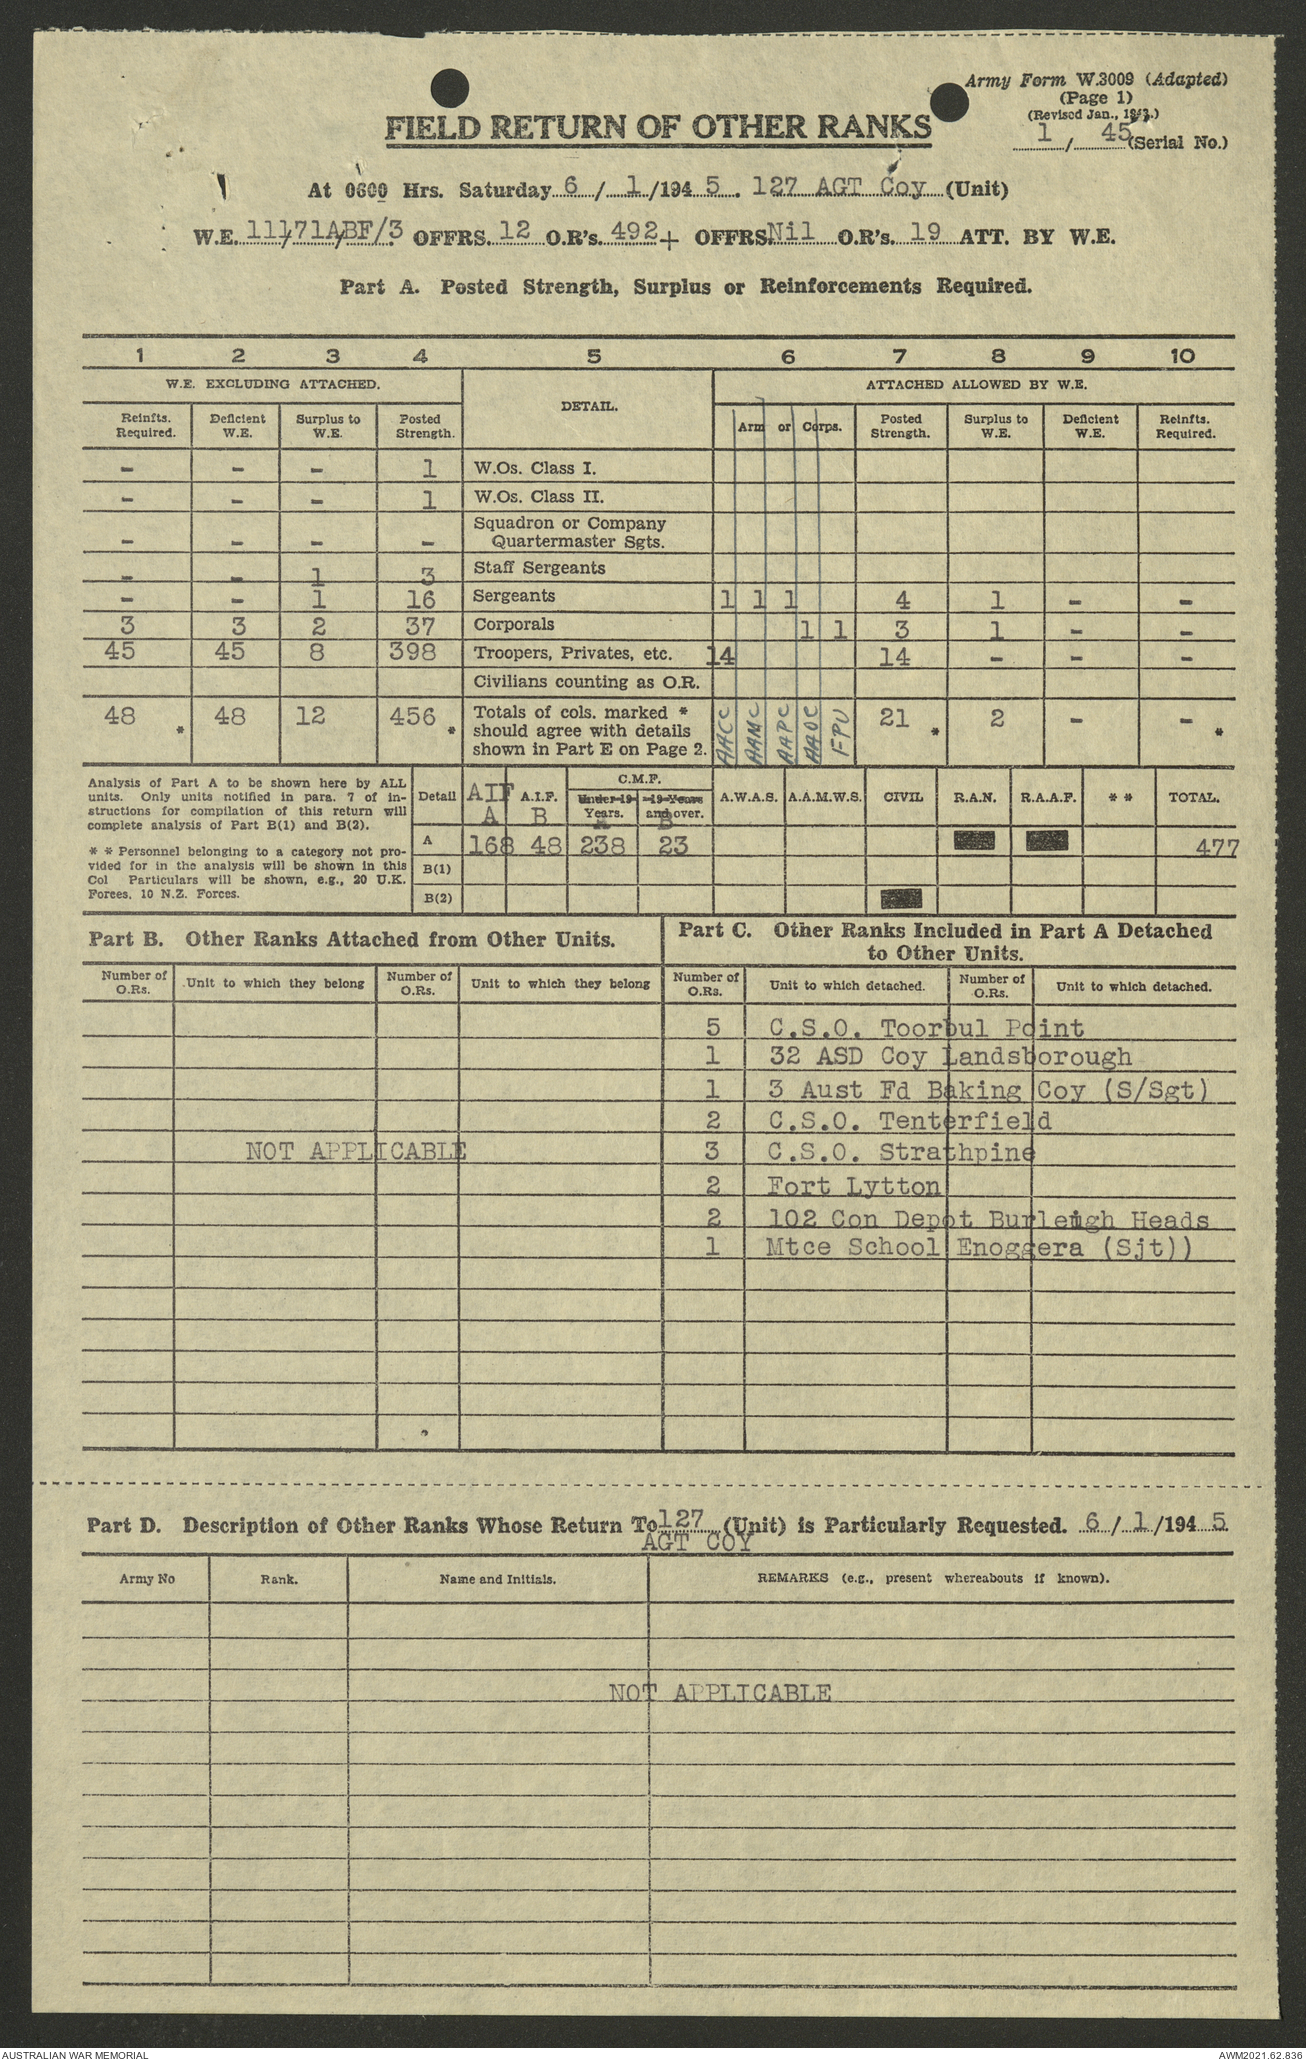 Army Form W.3009 (Adapted)
(Page 1)
(Revised Jan., 1943.)
1 / 45 (Serial No.)
FIELD RETURN OF OTHER RANKS
At 0600 Hrs. Saturday 6 / 1 /194 5 . 127 AGT Coy (Unit)
W.E. 11/71A/BF/3 OFFRS. 12 O.R's. 492 + OFFRS. Nil O.R's. 19 ATT. BY W.E.
Part A. Posted Strength, Surplus or Reinforcements Required.
1 2 3 4 5 6 7 8 9 10
W.E. EXCLUDING ATTACHED. DETAIL. ATTACHED ALLOWED BY W.E.
Reinfts. Required. Deficient W.E. Surplus to W.E. Posted Strength. Arm or Corps. Posted Strength. Surplus to W.E. Deficient W.E. Reinfts. Required.
- - - 1 W.Os. Class I.
- - - 1 W.Os. Class II.
Squadron or Company
- - - - Quartermaster Sgts.
- - 1 3 Staff Sergeants
- - 1 16 Sergeants 1 1 1 4 1 - -
3 3 2 37 Corporals 1 1 3 1 - -
45 45 8 398 Troopers, Privates, etc. 14 14 - - -
Civilians counting as O.R.
48 * 48 12 456 * Totals of cols. marked * should agree with details shown in Part E on Page 2. AACC AAMC AAPC AAOC FPU 21 * 2 - - *
Analysis of Part A to be shown here by ALL
units. Only units notified in para. 7 of in-
structions for compilation of this return will
complete analysis of Part B(1) and B(2).
* * Personnel belonging to a category not pro-
vided for in the analysis will be shown in this
Col Particulars will be shown, e.g., 20 U.K.
Forces, 10 N.Z. Forces.
C.M.F.
Detail AIF A A.I.F. B Under 19 Years. A 19 Years and over. B A.W.A.S. A.A.M.W.S. CIVIL R.A.N. R.A.A.F. * * TOTAL.
A 168 48 238 23 477
B(1)
B(2)
Part B. Other Ranks Attached from Other Units.
Number of O.Rs. Unit to which they belong Number of O.Rs. Unit to which they belong
NOT APPLICABLE
Part C. Other Ranks Included in Part A Detached
to Other Units.
Number of O.Rs. Unit to which detached. Number of O.Rs. Unit to which detached.
5 C.S.O. Toorbul Point
1 32 ASD Coy Landsborough
1 3 Aust Fd Baking Coy (S/Sgt)
2 C.S.O. Tenterfield
3 C.S.O. Strathpine
2 Fort Lytton
2 102 Con Depot Burleigh Heads
1 Mtce School Enoggera (Sjt))
Part D. Description of Other Ranks Whose Return To 127 AGT COY (Unit) is Particularly Requested. 6 / 1 /194 5
Army No Rank. Name and Initials. REMARKS (e.g., present whereabouts if known).
NOT APPLICABLE
AUSTRALIAN WAR MEMORIAL AWM2021.62.836